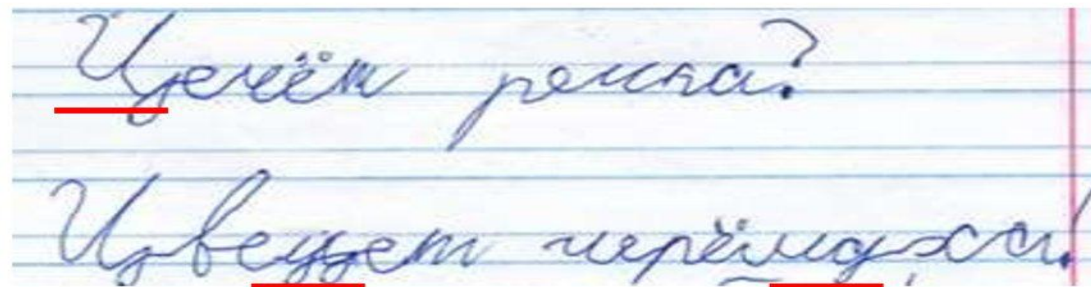 Цечёт речка?
Цвецет черёмуха!